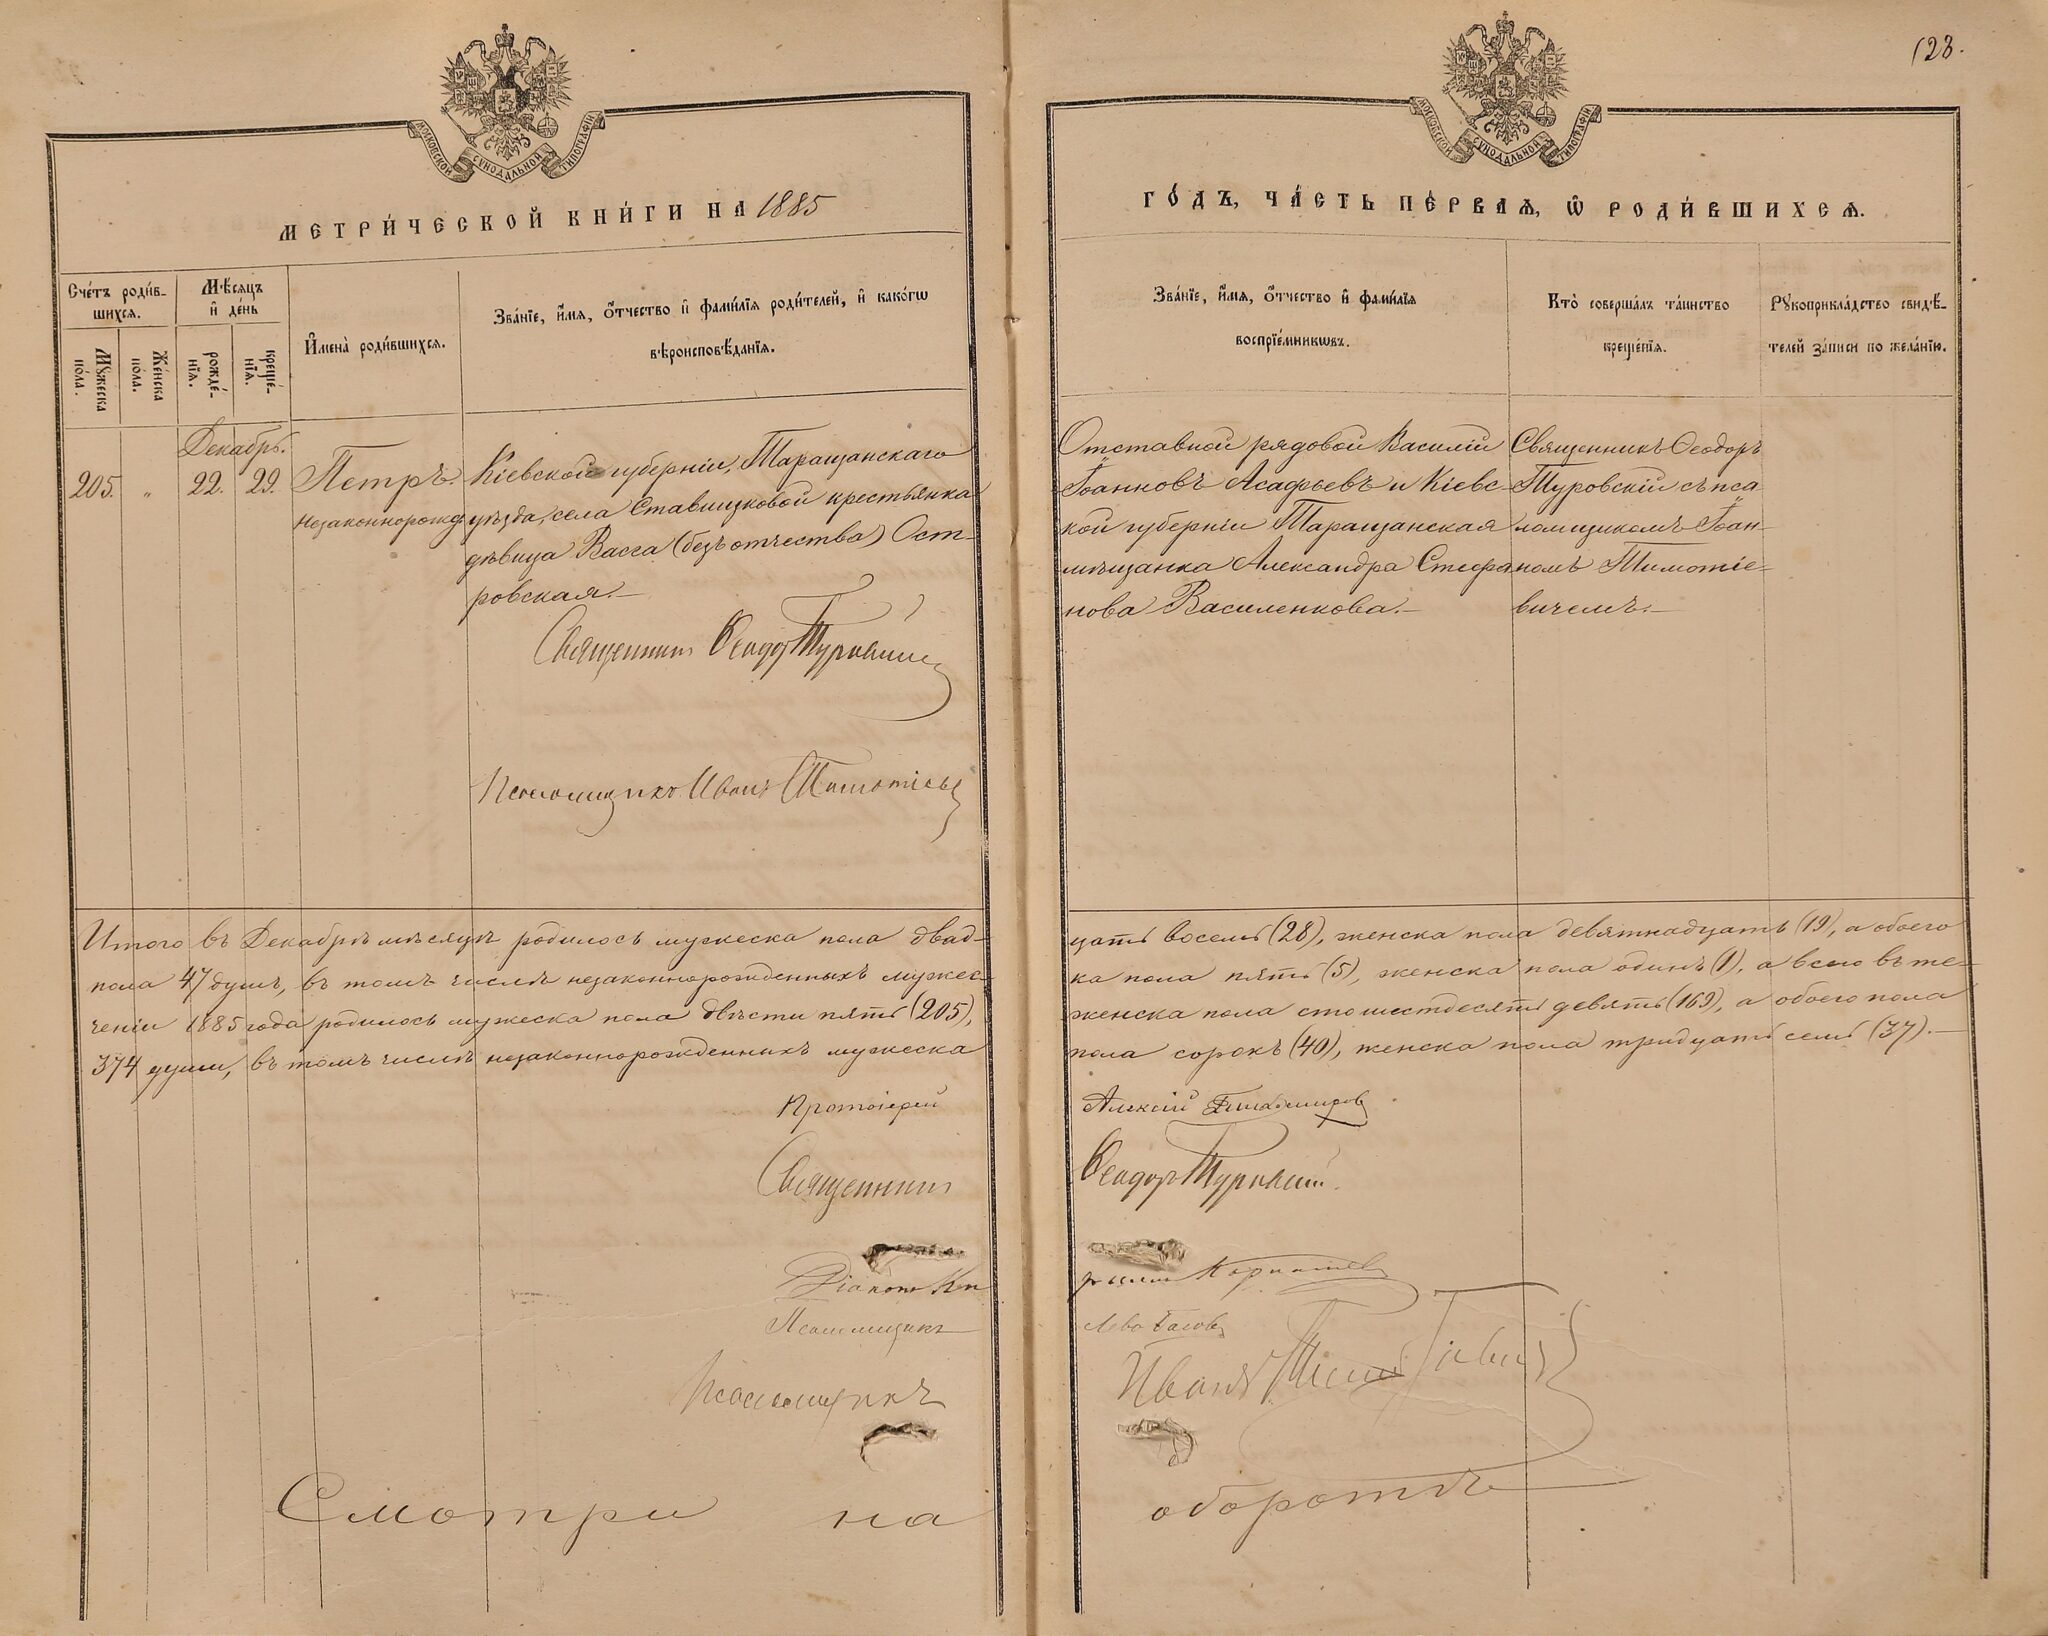 128.
МОСКОВСКОЙ СѴНОДАЛЬНОЙ ТИПОГРАФІИ
МОСКОВСКОЙ СѴНОДАЛЬНОЙ ТИПОГРАФІИ
МЕТРИ́ЧЕСКОЙ КНИ́ГИ НА 1885
ГО́ДЪ, ЧА́СТЬ ПЕ́РВАѦ, Ѡ҆ РОДИ́ВШИХСѦ.
Сче́тъ роди́в-
шихсѧ.
Мꙋ́жеска по́ла.
Же́нска по́ла.
Мѣ́сѧцъ и҆ де́нь
рожде́-нїѧ.
креще́-нїѧ.
И҆мена̀ роди́вшихсѧ.
Зва́нїе, и҆́мѧ, ѻ҆́тчество и҆ фами́лїѧ роди́телей, и҆ како́гѡ
вѣроисповѣ́данїѧ.
Зва́нїе, и҆́мѧ, ѻ҆́тчество и҆ фами́лїѧ
воспрїе́мникѡвъ.
Кто̀ соверша́лъ та́инство
креще́нїѧ.
Рꙋкоприкла́дство свидѣ́-
телей за́писи по жела́нїю.
Декабрь.
205. „ 22. 29.
Петръ.
Незаконнорожд.
Кіевской губерніи, Таращанскаго
уѣзда, села Ставищковой крестьянка
дѣвица Васса (безъ отчества) Ост-
ровская.—
Отставной рядовой Василій
Іоанновъ Асафьевъ и Кіевс-
кой губерніи Таращанская
мѣщанка Александра Стефа-
нова Василенкова.—
Священникъ Ѳеодоръ
Туровскій съ пса-
ломщикомъ Іоан-
номъ Тимотіе-
вичемъ.—
Священникъ Ѳеодоръ Туровскій
Псаломщикъ Иванъ Тимотіевъ
Итого въ Декабрѣ мѣсяцѣ родилось мужеска пола двад-
цать восемь (28), женска пола девятнадцать (19), а обоего
пола 47 душъ, въ томъ числѣ незаконнорожденныхъ мужес-
ка пола пять (5), женска пола одинъ (1), а всего въ те-
ченіи 1885 года родилось мужеска пола двѣсти пять (205),
женска пола сто шестьдесятъ девять (169), а обоего пола
374 души, въ томъ числѣ незаконнорожденныхъ мужеска
пола сорокъ (40), женска пола тридцать семь (37).—
Протоіерей Алексій
Священникъ Ѳеодоръ Туровскій
Діаконъ
Псаломщикъ
Псаломщикъ Иванъ
Смотри на оборотѣ